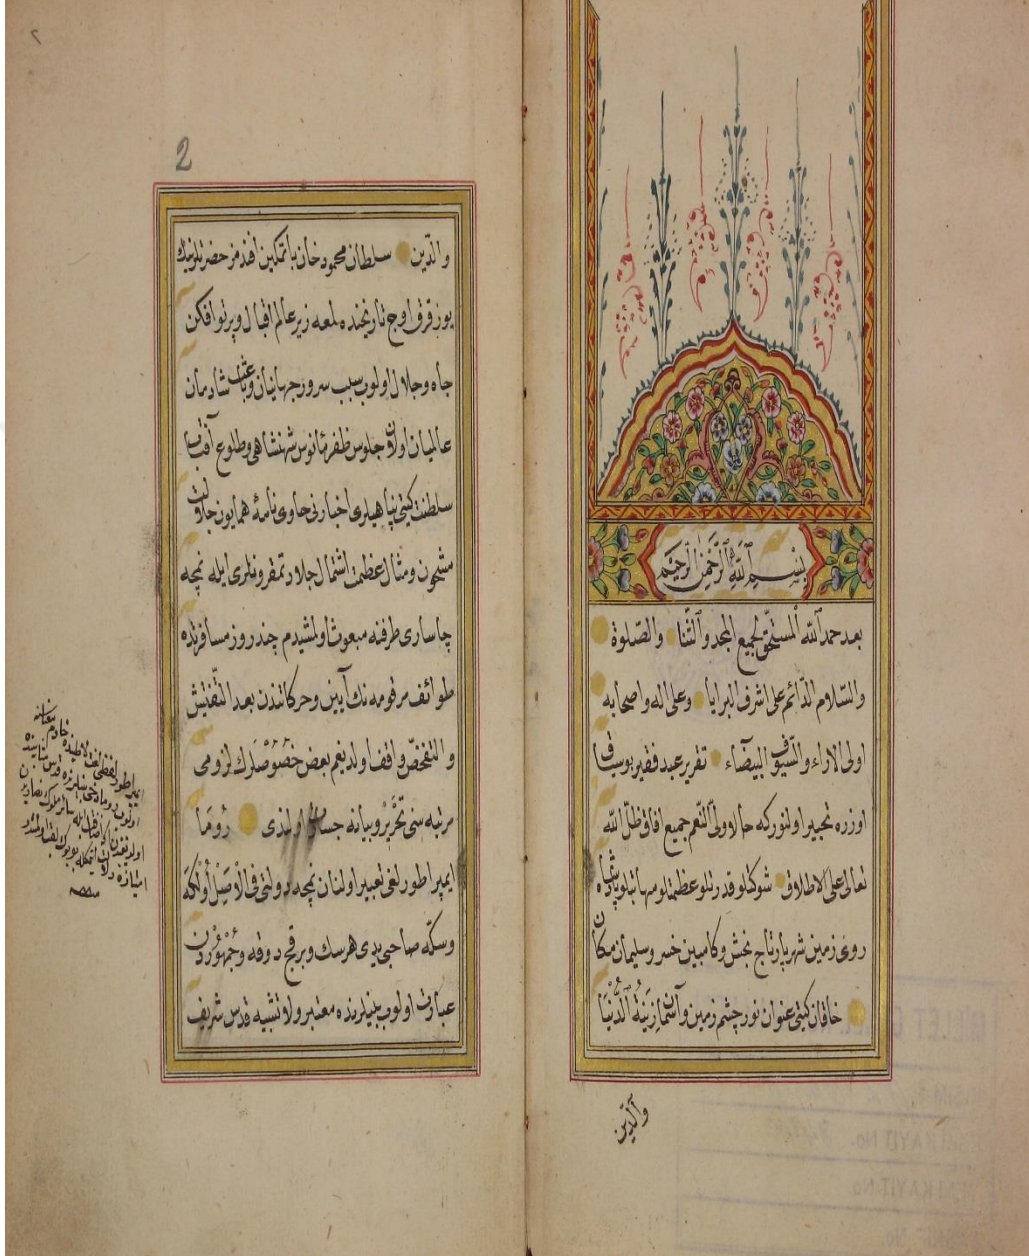 بسم الله الرحمن الرحيم
بعد حمد الله المستحق لجميع المجد والثنا والصلوة
والسلام الدائم على اشرف البرايا وعلى اله واصحابه
اولى الاراء والسيوف البيضاء تقرير عبد فقير بوسياقا
اوزره تحبير اولنوركه حالا ولى النعم جميع افاق ظل الله
تعالى على الاطلاق شوكتلو قدرتلو عظمتلو مهابتلو پادشاه
روى زمين شهريار تاج بخش وكامبين خسرو سليمان مكان
خاقان كيتى عنوان نور چشم زمين وآسمان زينة الدنيا
والدين
2
والدين سلطان محمود خان باتمكين افندمز حضرتلرينك
يوز قرق اوج تاريخنده لمعه زير عالم اقبال وپرتو افكن
جاه وجلال اولوب سبب سرور جهانيان وباعث شادمان
عالميان اولان جلوس ظفر مأنوس شهنشاهى وطلوع آفتاب
سلطنت كيتى پناهيلرى اخبارنى حاوى نامۀ همايون جلالت
مشحون ومثال عظمت اشتمال جلادتمقرونلرى ايله نمچه
چاسارى طرفنه مبعوث اولمشيدم چند روز مسافرتده
طوائف مرقومه نك آيين وحركاتندن بعد التفتيش
والتفحص واقف اولديغم بعض خصوصلرك لزومى
مرتبه سنى تحرير وبيانه جسارت اولندى روما
ايمپراطورلغى تعبير اولنان نمچه دولتى فى الاصل اولكه
وسكه صاحبى يدى هرسك وبر قچ دوقه وجمهوردن
عبارت اولوب بينلرنده معتبر ولا تشبيه قدس شريف
ايمپراطور لفظى لغت لاطينده خادم معناسنه